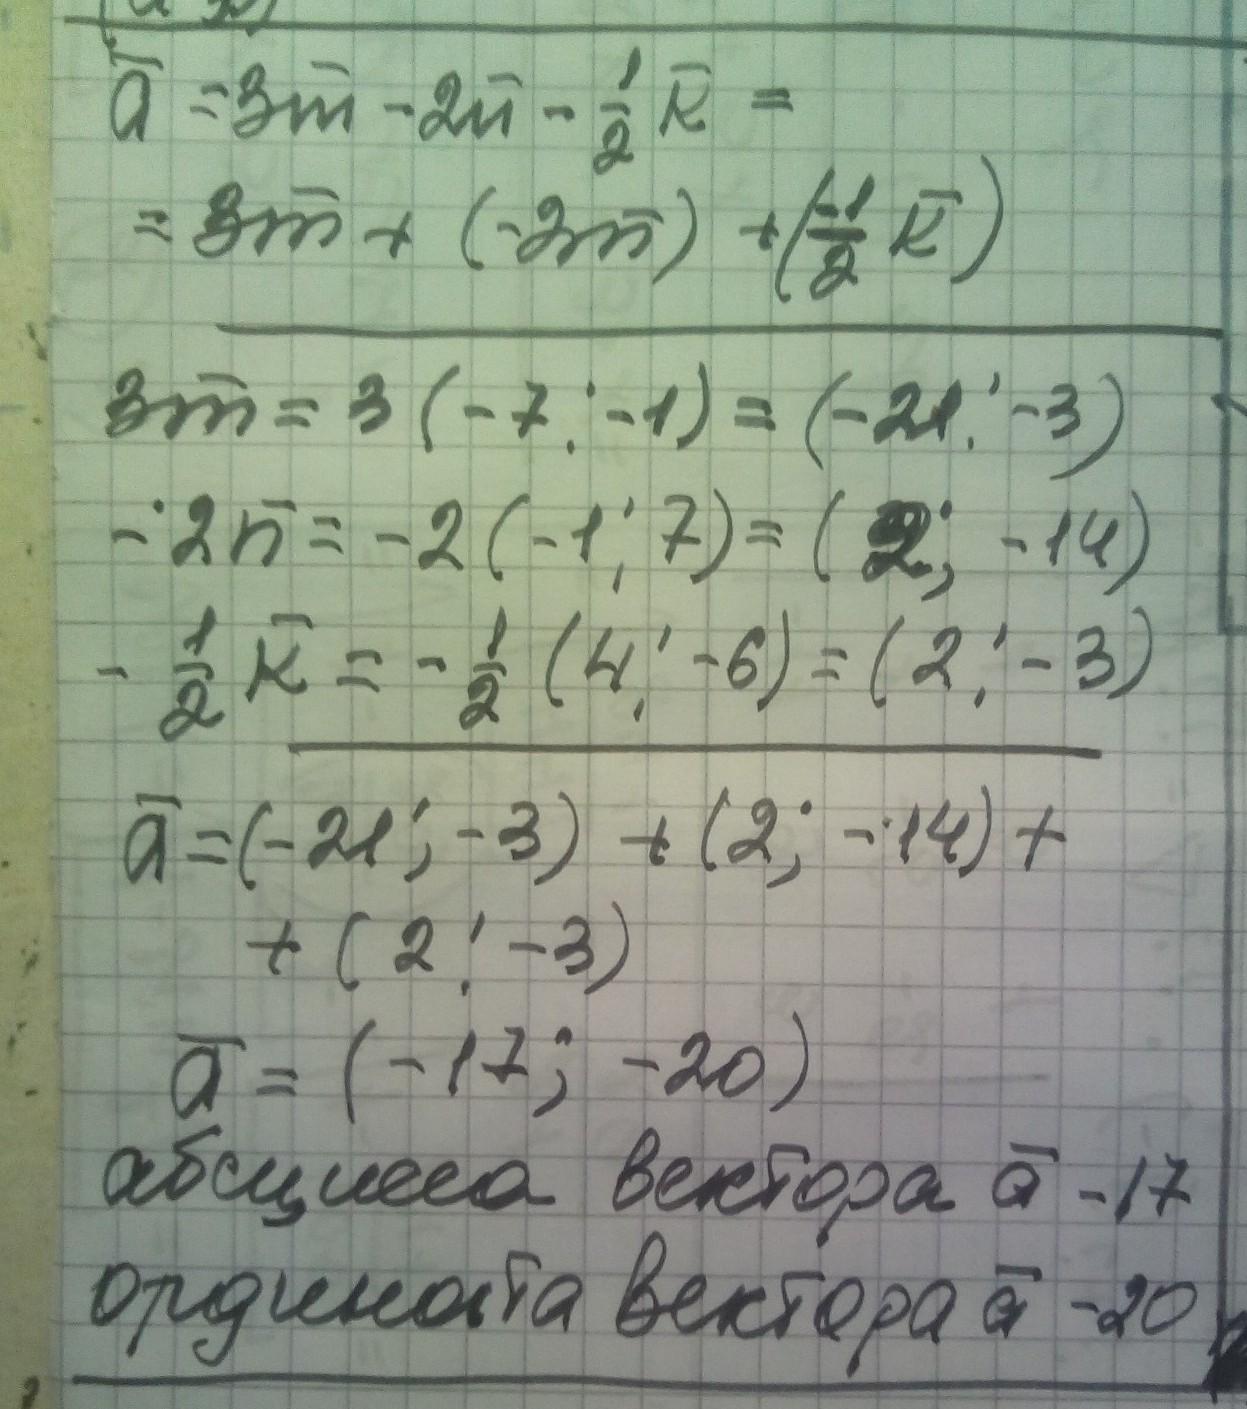 a̅ = 3m̅ - 2n̅ - 1/2 k̅ =
= 3m̅ + (-2n̅) + (-1/2 k̅)
3m̅ = 3(-7; -1) = (-21; -3)
- 2n̅ = -2(-1; 7) = (2; -14)
- 1/2 k̅ = - 1/2 (4; -6) = (2; -3)
a̅ = (-21; -3) + (2; -14) +
+ (2; -3)
a̅ = (-17; -20)
абсцисса вектора a̅ -17
ордината вектора a̅ -20